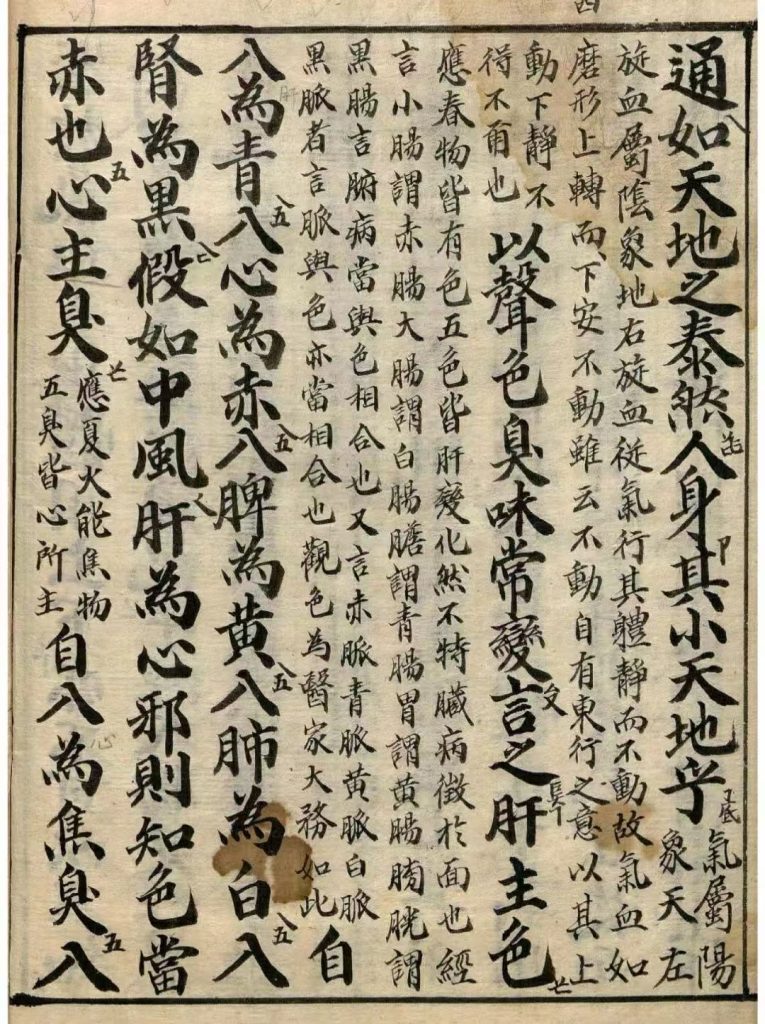 通如天地之泰然人身其小天地乎
氣屬陽
象天左
旋血屬陰象地右旋血従氣行其軆靜而不動故氣血如
磨形上轉而下安不動雖云不動自有東行之意以其上
動下靜不
得不爾也
以聲色臭味常變言之肝主色
應春物皆有色五色皆肝變化然不特臟病徵於面也經
言小腸謂赤腸大腸謂白腸膽謂青腸胃謂黄腸膀胱謂
黒腸言腑病當與色相合也又言赤脈青脈黄脈白脈
黒脈者言脈與色亦當相合也觀色為醫家大務如此
自
入為青入心為赤入脾為黄入肺為白入
腎為黒假如中風肝為心邪則知色當
赤也心主臭
應夏火能焦物
五臭皆心所主
自入為焦臭入